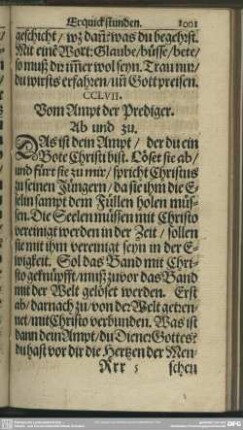 Erquickstunden. 1001
geschicht / wz dañ was du begehrst.
Mit einē Wort: Glaube / büsse / bete /
so muß dir im̄er wol seyn. Trau nur /
du wirsts erfahren / uñ Gott preisen.
CCLVII.
Vom Ampt der Prediger.
Ab und zu.
DAs ist dein Ampt / der du ein
Bote Christi bist. Löset sie ab /
und fürt sie zu mir / spricht Christus
zu seinen Jüngern / da sie ihm die E-
selin sampt dem Füllen holen müs-
sen. Die Seelen müssen mit Christo
vereinigt werden in der Zeit / sollen
sie mit ihm vereinigt seyn in der E-
wigkeit. Sol das Band mit Chri-
sto geknüpfft / muß zuvor das Band
mit der Welt gelöset werden. Erst
ab / darnach zu / von der Welt getren-
net / mit Christo verbunden. Was ist
dann dein Ampt / du Diener Gottes?
du hast vor dir die Hertzen der Men-
Rrr 5 schen